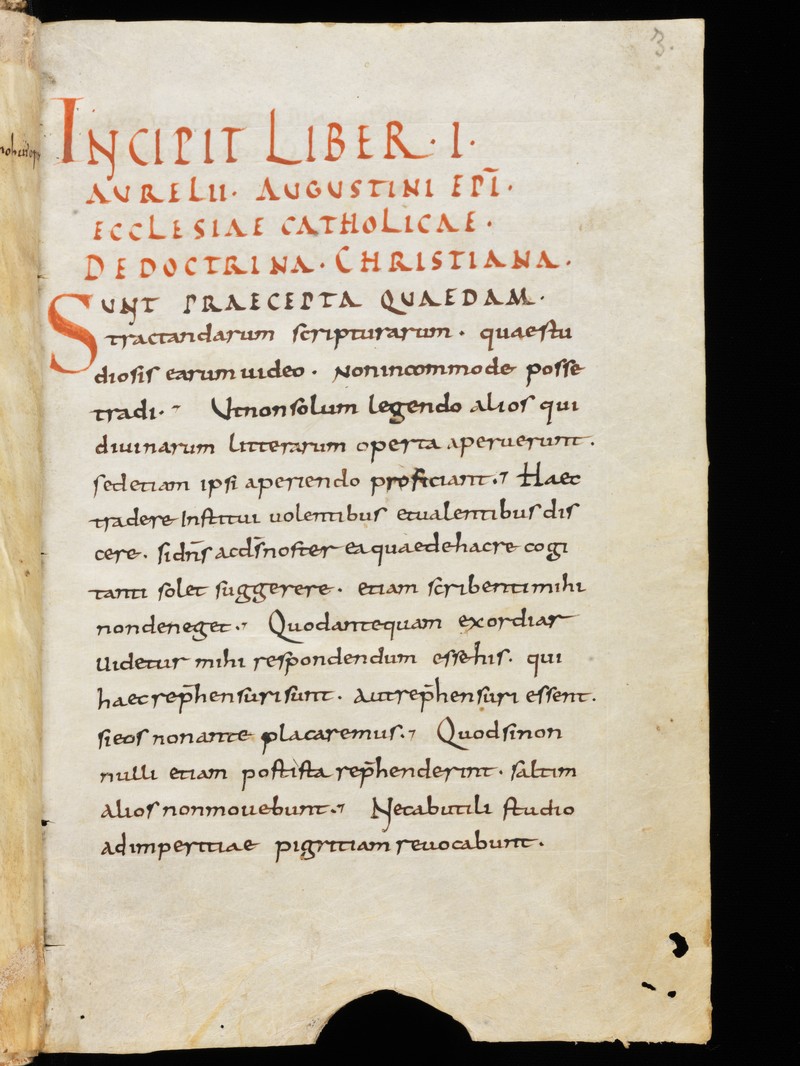 3.
INCIPIT LIBER · I ·
AURELII · AUGUSTINI EPĪ ·
ECCLESIAE CATHOLICAE ·
DE DOCTRINA · CHRISTIANA ·
SUNT PRAECEPTA QUAEDAM ·
tractandarum scripturarum · quae stu
diosis earum uideo · Non incommode posse
tradi · Ut non solum legendo alios qui
diuinarum litterarum operta aperuerunt ·
sed etiam ipsi aperiendo proficiant · Haec
tradere Institui uolentibus et ualentibus dis
cere · si dn̄s ac ds̄ noster ea quae de hac re cogi
tanti solet suggerere · etiam scribenti mihi
non deneget · Quod antequam exordiar
Uidetur mihi respondendum esse his · qui
haec rep̄hensuri sunt · Aut rep̄hensuri essent ·
si eos non ante placaremus · Quod si non
nulli etiam post ista rep̄henderint · saltim
Alios non mouebunt · Nec ab utili studio
ad imperitiae pigritiam reuocabunt ·